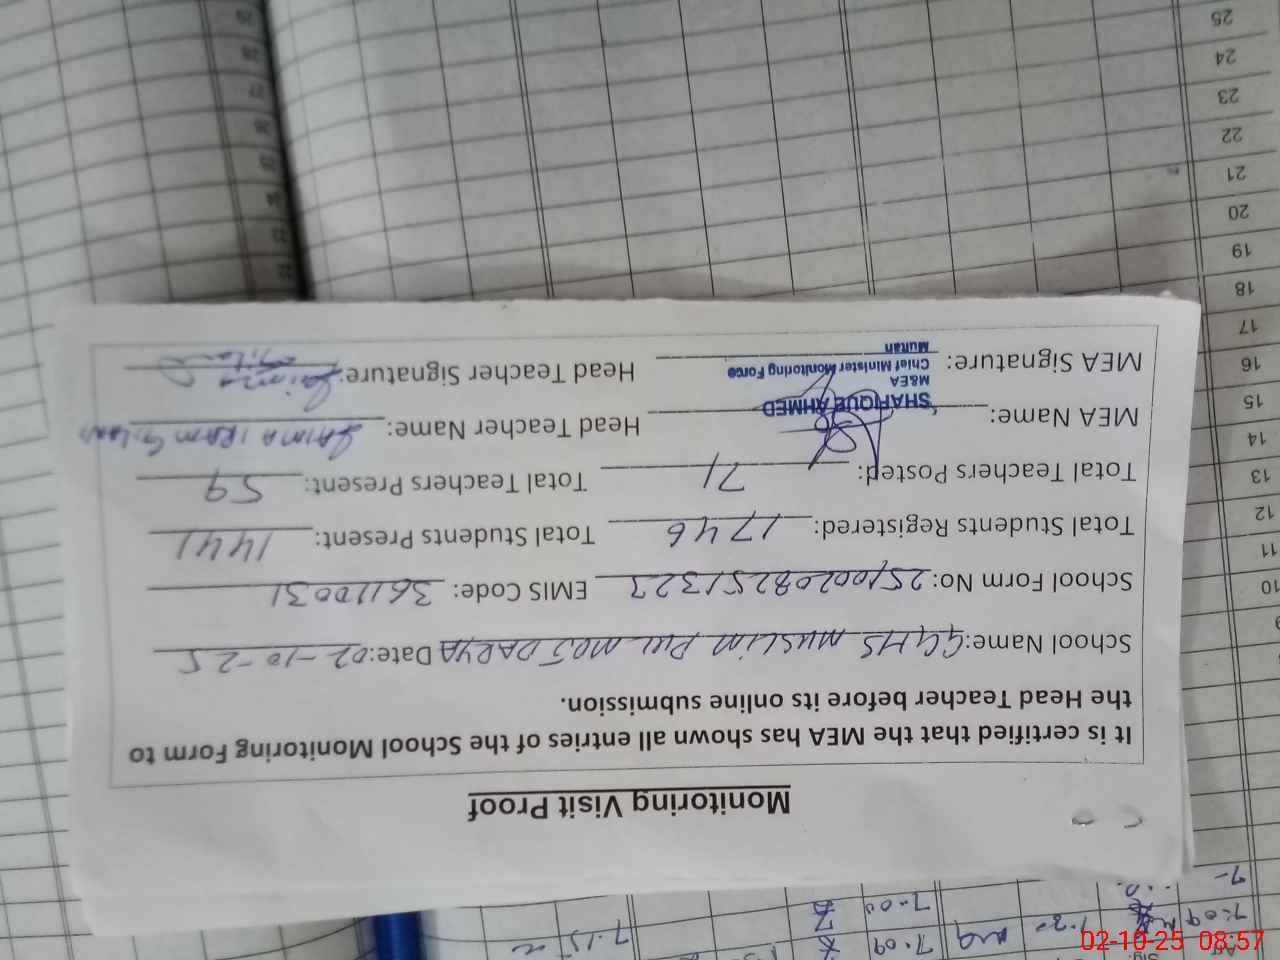 Monitoring Visit Proof
It is certified that the MEA has shown all entries of the School Monitoring Form to
the Head Teacher before its online submission.
School Name: GGHS MUSLIM PUR MOJ DARYA Date: 02-10-25
School Form No: EMIS Code: 36110031
Total Students Registered: 1746 Total Students Present: 1441
Total Teachers Posted: 71 Total Teachers Present: 59
MEA Name: Head Teacher Name: SAIMA IRAM GILANI
SHAFIQUE AHMED
M&EA
Chief Minister Monitoring Force
Multan
MEA Signature: Head Teacher Signature: Saima Gilani
7:09 7:15
7:00
7:09
10
11
12
13
14
15
16
17
18
19
20
21
22
23
24
25
02-10-25 08:57